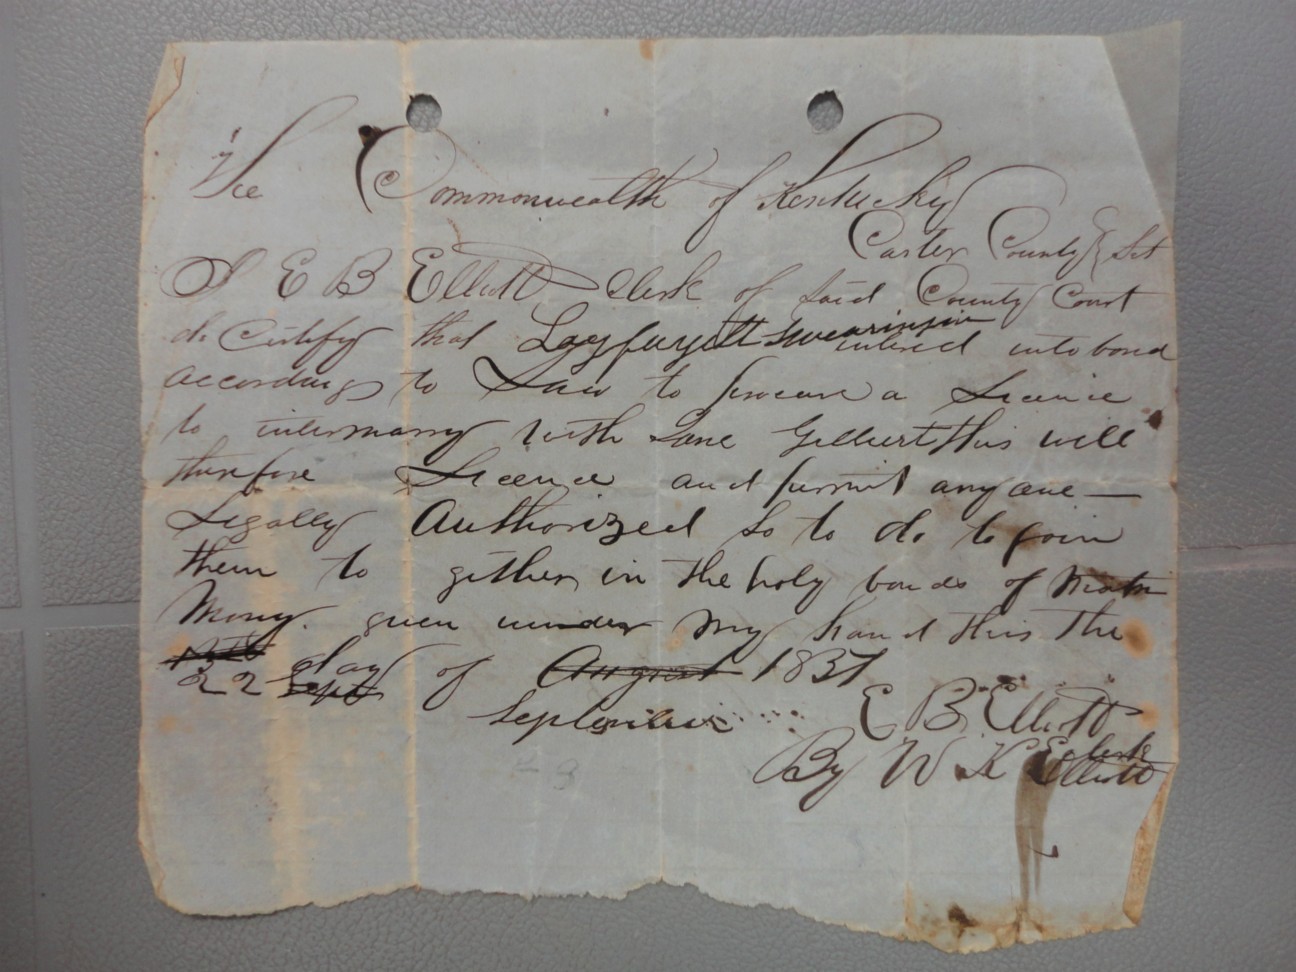 The Commonwealth of Kentucky
Carter County } Sct
I E B Elliott Clerk of Said County Court
do Certify that Layfayett Swearingin entered into bond
according to Law to procure a Licence
to intermarry With Jane Gilbert this will
therefore Licence and permit any one —
Legally Authorized so to do to join
them to gether in the holy bonds of Matri
Mony. given under My hand this the
22 day of August 1857
September E B Elliott
Clerk
By W K Elliott